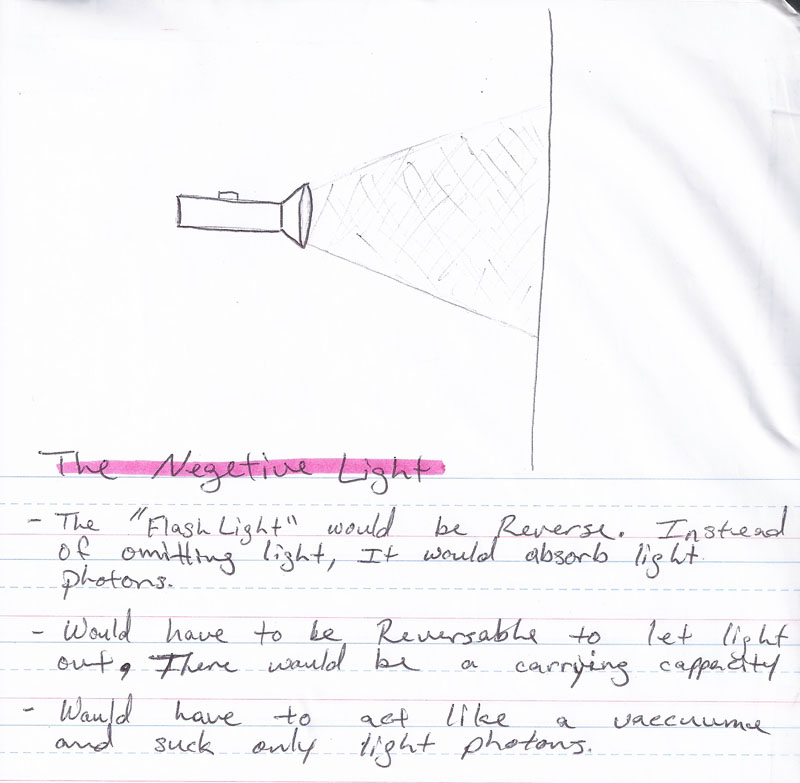 The Negetive Light
- The "Flash Light" would be Reverse. Instead
of omitting light, It would absorb light
photons.
- Would have to be Reversable to let light
out, There would be a carrying cappacity
- Would have to act like a vaccuume
and suck only light photons.